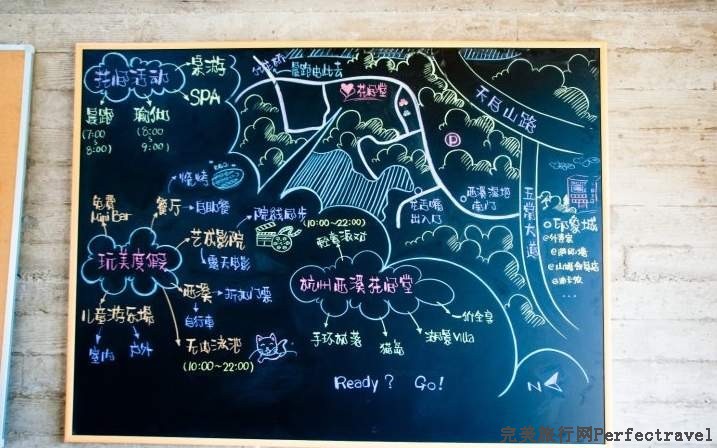 花间活动
桌游
SPA
晨跑
(7:00
~
8:00)
瑜伽
(8:00
~
9:00)
晨跑由此去
花间堂
天目山路
P
西溪湿地
南门
花朝
出入口
五常大道
印象城
@外婆家
@星巴克
...
烧烤
餐厅
自助餐
免费
Mini Bar
玩美度假
艺术影院
院线同步
露天电影
(10:00~22:00)
西溪
折扣门票
自行车
儿童游乐场
室内
户外
无边泳池
(10:00~22:00)
杭州西溪花间堂
一价全享
手环部落
猫岛
湖景Villa
Ready? Go!
N
完美旅行网Perfectravel